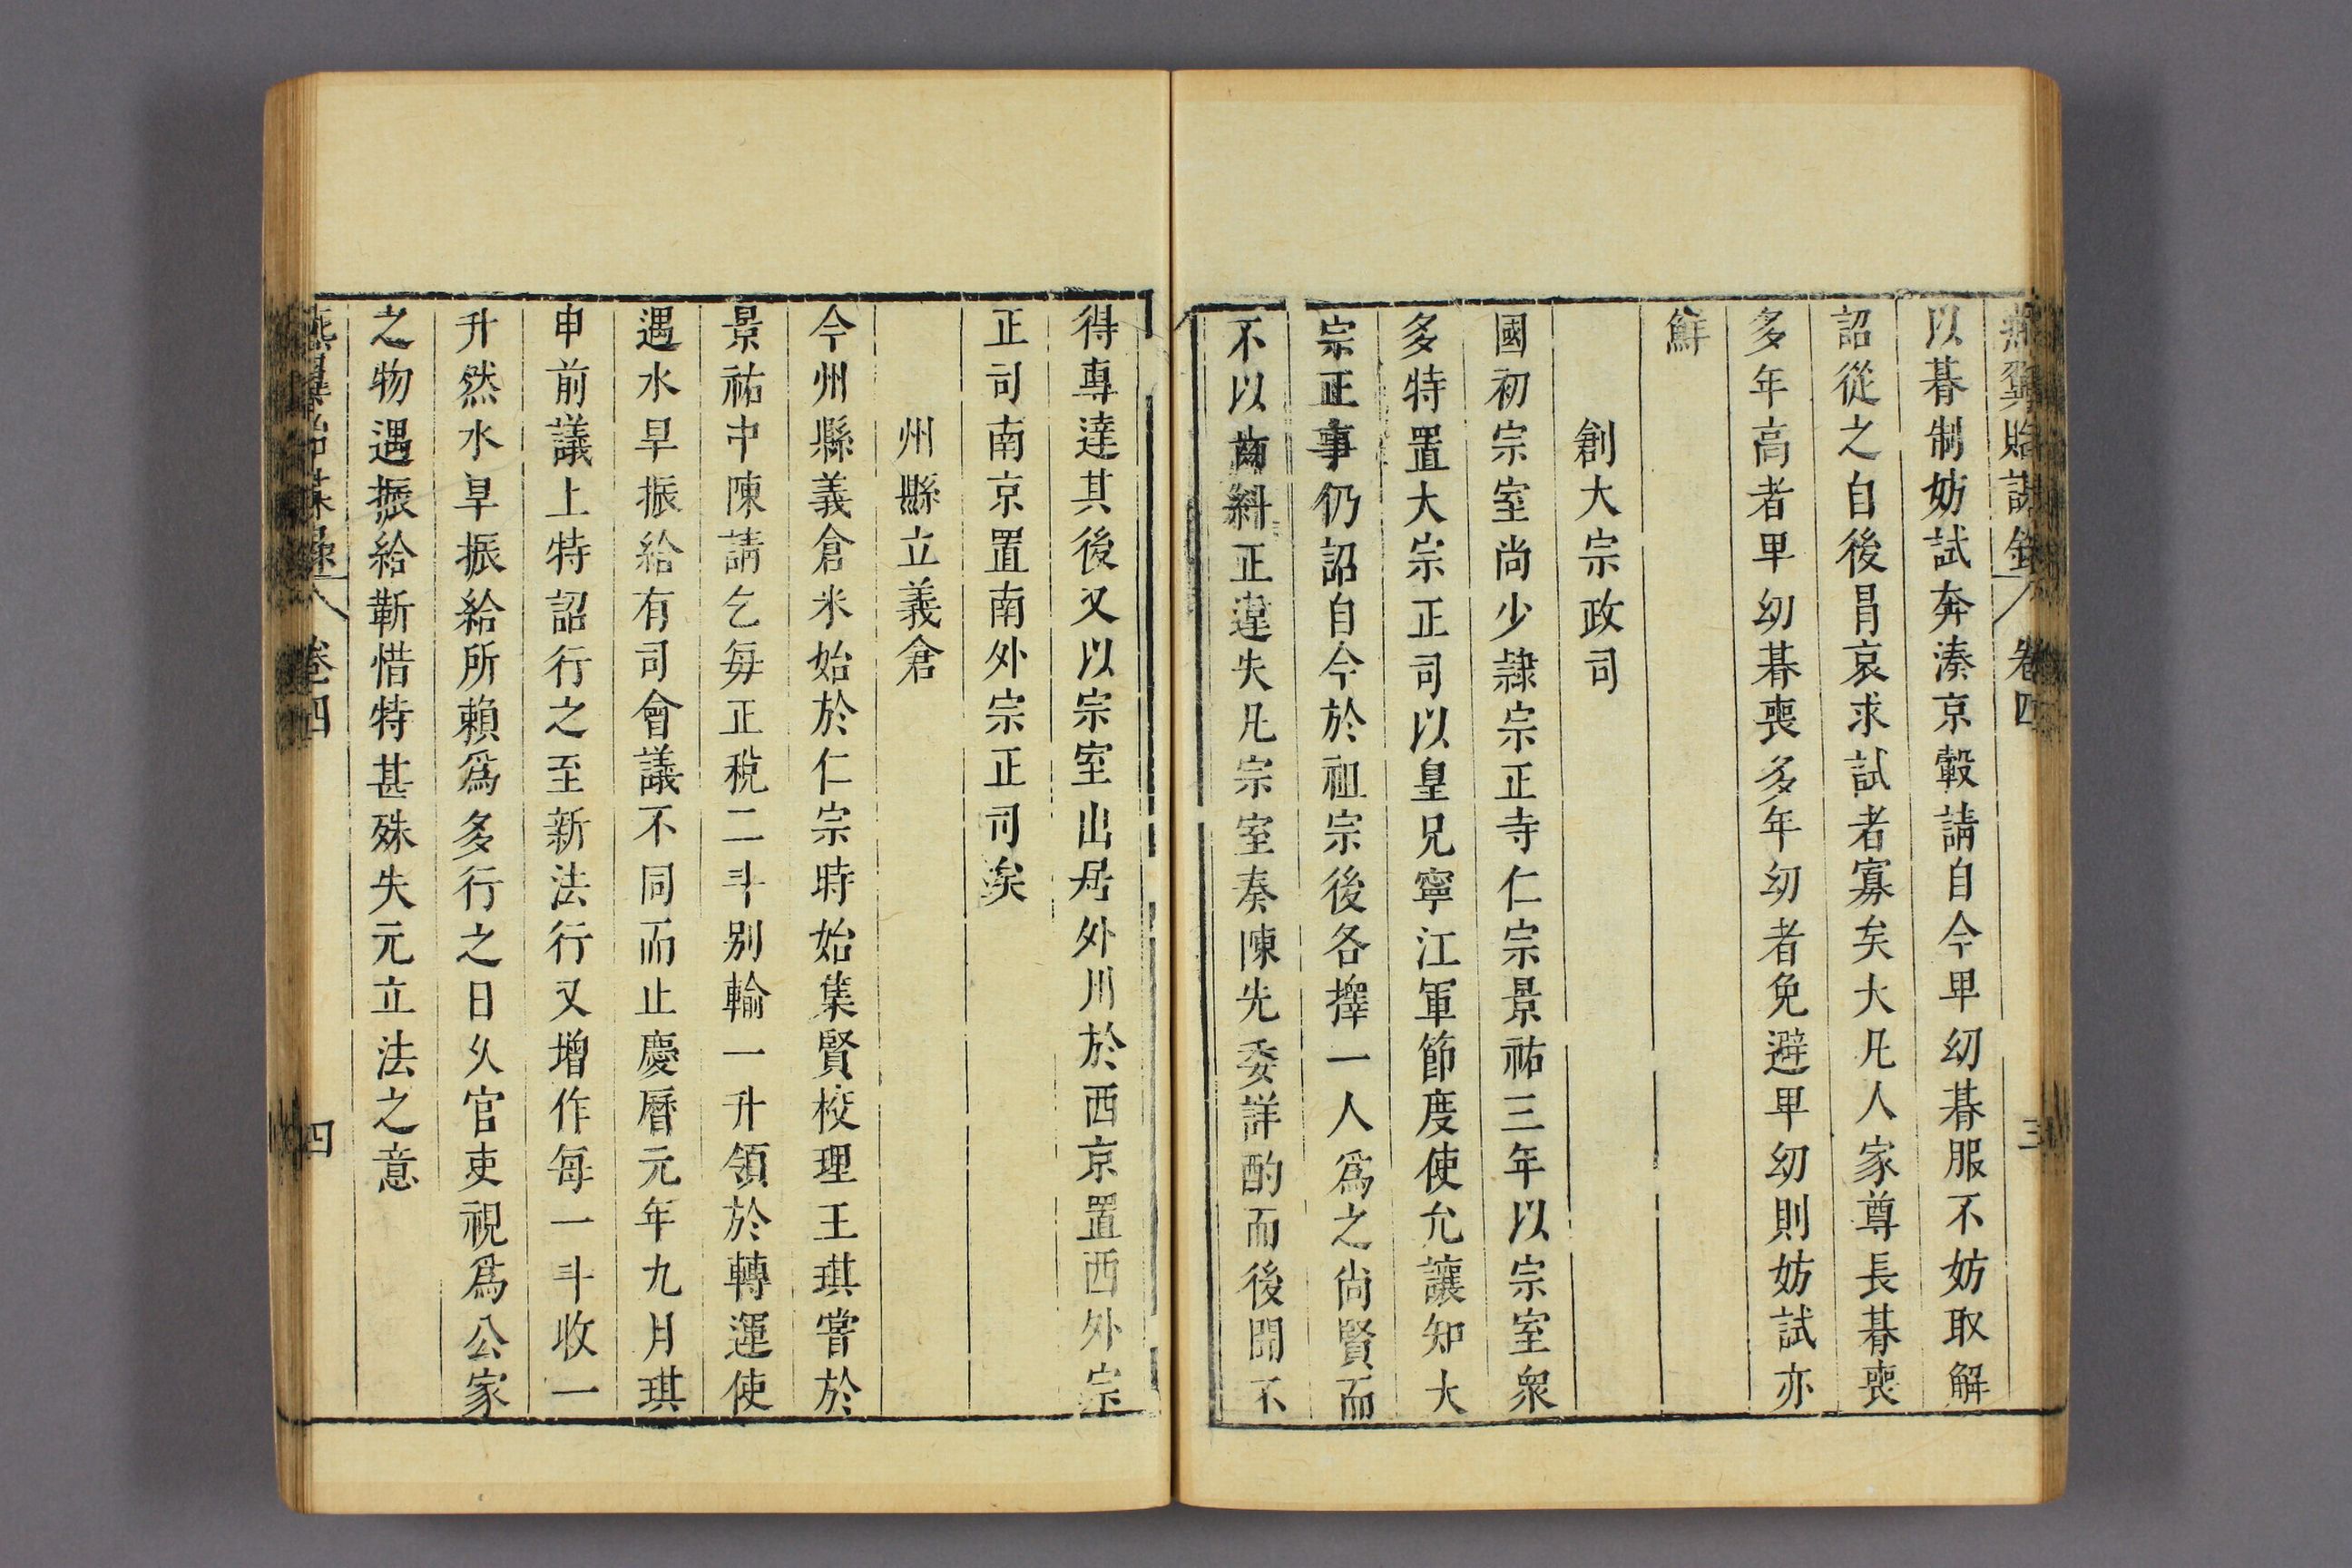 燕翼貽謀錄 卷四 三
以朞制妨試奔湊京轂請自今卑幼朞服不妨取解
詔從之自後冐哀求試者寡矣大凡人家尊長朞喪
多年高者卑幼朞喪多年幼者免避卑幼則妨試亦
鮮
創大宗政司
國初宗室尚少隷宗正寺仁宗景祐三年以宗室衆
多特置大宗正司以皇兄寧江軍節度使允讓知大
宗正事仍詔自今於祖宗後各擇一人爲之尚賢而
不以齒糾正違失凡宗室奏陳先委詳酌而後聞不
得專達其後又以宗室出居外川於西京置西外宗
正司南京置南外宗正司矣
州縣立義倉
今州縣義倉米始於仁宗時始集賢校理王琪嘗於
景祐中陳請乞每正稅二斗别輸一升領於轉運使
遇水旱振給有司會議不同而止慶曆元年九月琪
申前議上特詔行之至新法行又增作每一斗收一
升然水旱振給所賴爲多行之日乆官吏視爲公家
之物遇振給靳惜特甚殊失元立法之意
燕翼詒謀錄 卷四 四